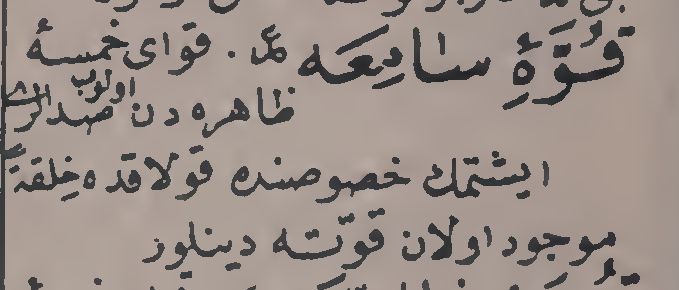 قُوَّۀِ سامِعَه عم . قوای خمسۀ
ظاهره دن اولوب صدالری
ایشتمك خصوصنده قولاقده خِلقةً
موجود اولان قوّته دینلور